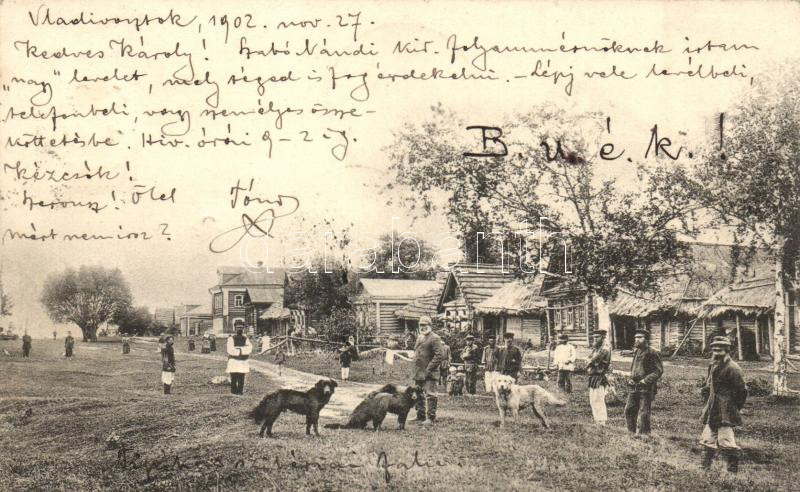 Vladivosztok, 1902. nov. 27.
Kedves Károly! Szabó Nándi kir. folyammérnöknek irtam
„nagy" levelet, mely téged is fog érdekelni. - Lépj vele levélbeli,
telefonbeli, vagy személyes össze-
köttetésbe. Hiv. órái 9-2 ig.
Kézcsók!
Szervusz! Ölel
Tóni
miért nem irsz?
B. u. é. k.!
darabanth
Tipikus szibériai falu.